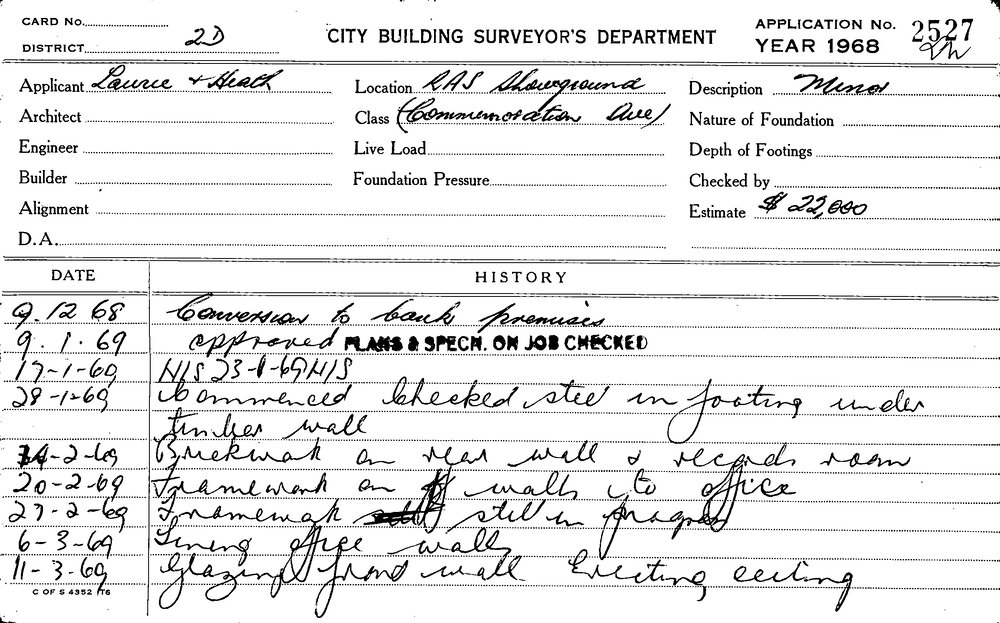 CARD No.
DISTRICT 2D
CITY BUILDING SURVEYOR'S DEPARTMENT
APPLICATION No. 2527
YEAR 1968
Applicant Laurie & Heath
Location RAS Showground
Description Minor
Architect
Class (Commemoration Ave)
Nature of Foundation
Engineer
Live Load
Depth of Footings
Builder
Foundation Pressure
Checked by
Alignment
Estimate $ 22,000
D.A.
DATE HISTORY
9.12 68 Conversion to bank premises
9.1.69 approved PLANS & SPECN. ON JOB CHECKED
17-1-69 N/S 23-1-69 N/S
28-1-69 Commenced Checked steel in footing under
timber wall
14-2-69 Brickwork on rear wall & records room
20-2-69 Framework on walls to office
27-2-69 Framework still in progress
6-3-69 Lining office walls
11-3-69 Glazing front wall Erecting ceiling
C OF S 4352 T6